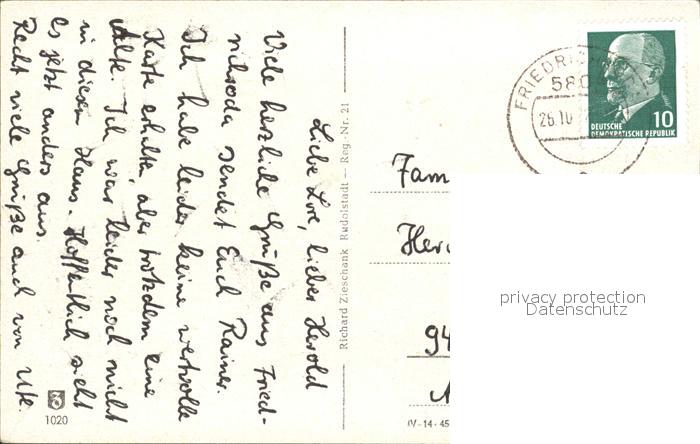 Liebe Lore, lieber Herold
Viele herzliche Grüße aus Fried-
richroda sendet Euch Rainer.
Ich habe leider keine wertvolle
Karte erhalten, aber trotzdem eine
alte. Ich war leider noch nicht
in diesem Haus. Hoffentlich sieht
es jetzt anders aus.
Recht viele Grüße auch von Ute.
1020
Richard Zieschank Rudolstadt — Reg.-Nr. 21
FRIEDRICH
580
26.10
DEUTSCHE
DEMOKRATISCHE REPUBLIK
10
Fam
Her
94
IV-14-45
privacy protection
Datenschutz